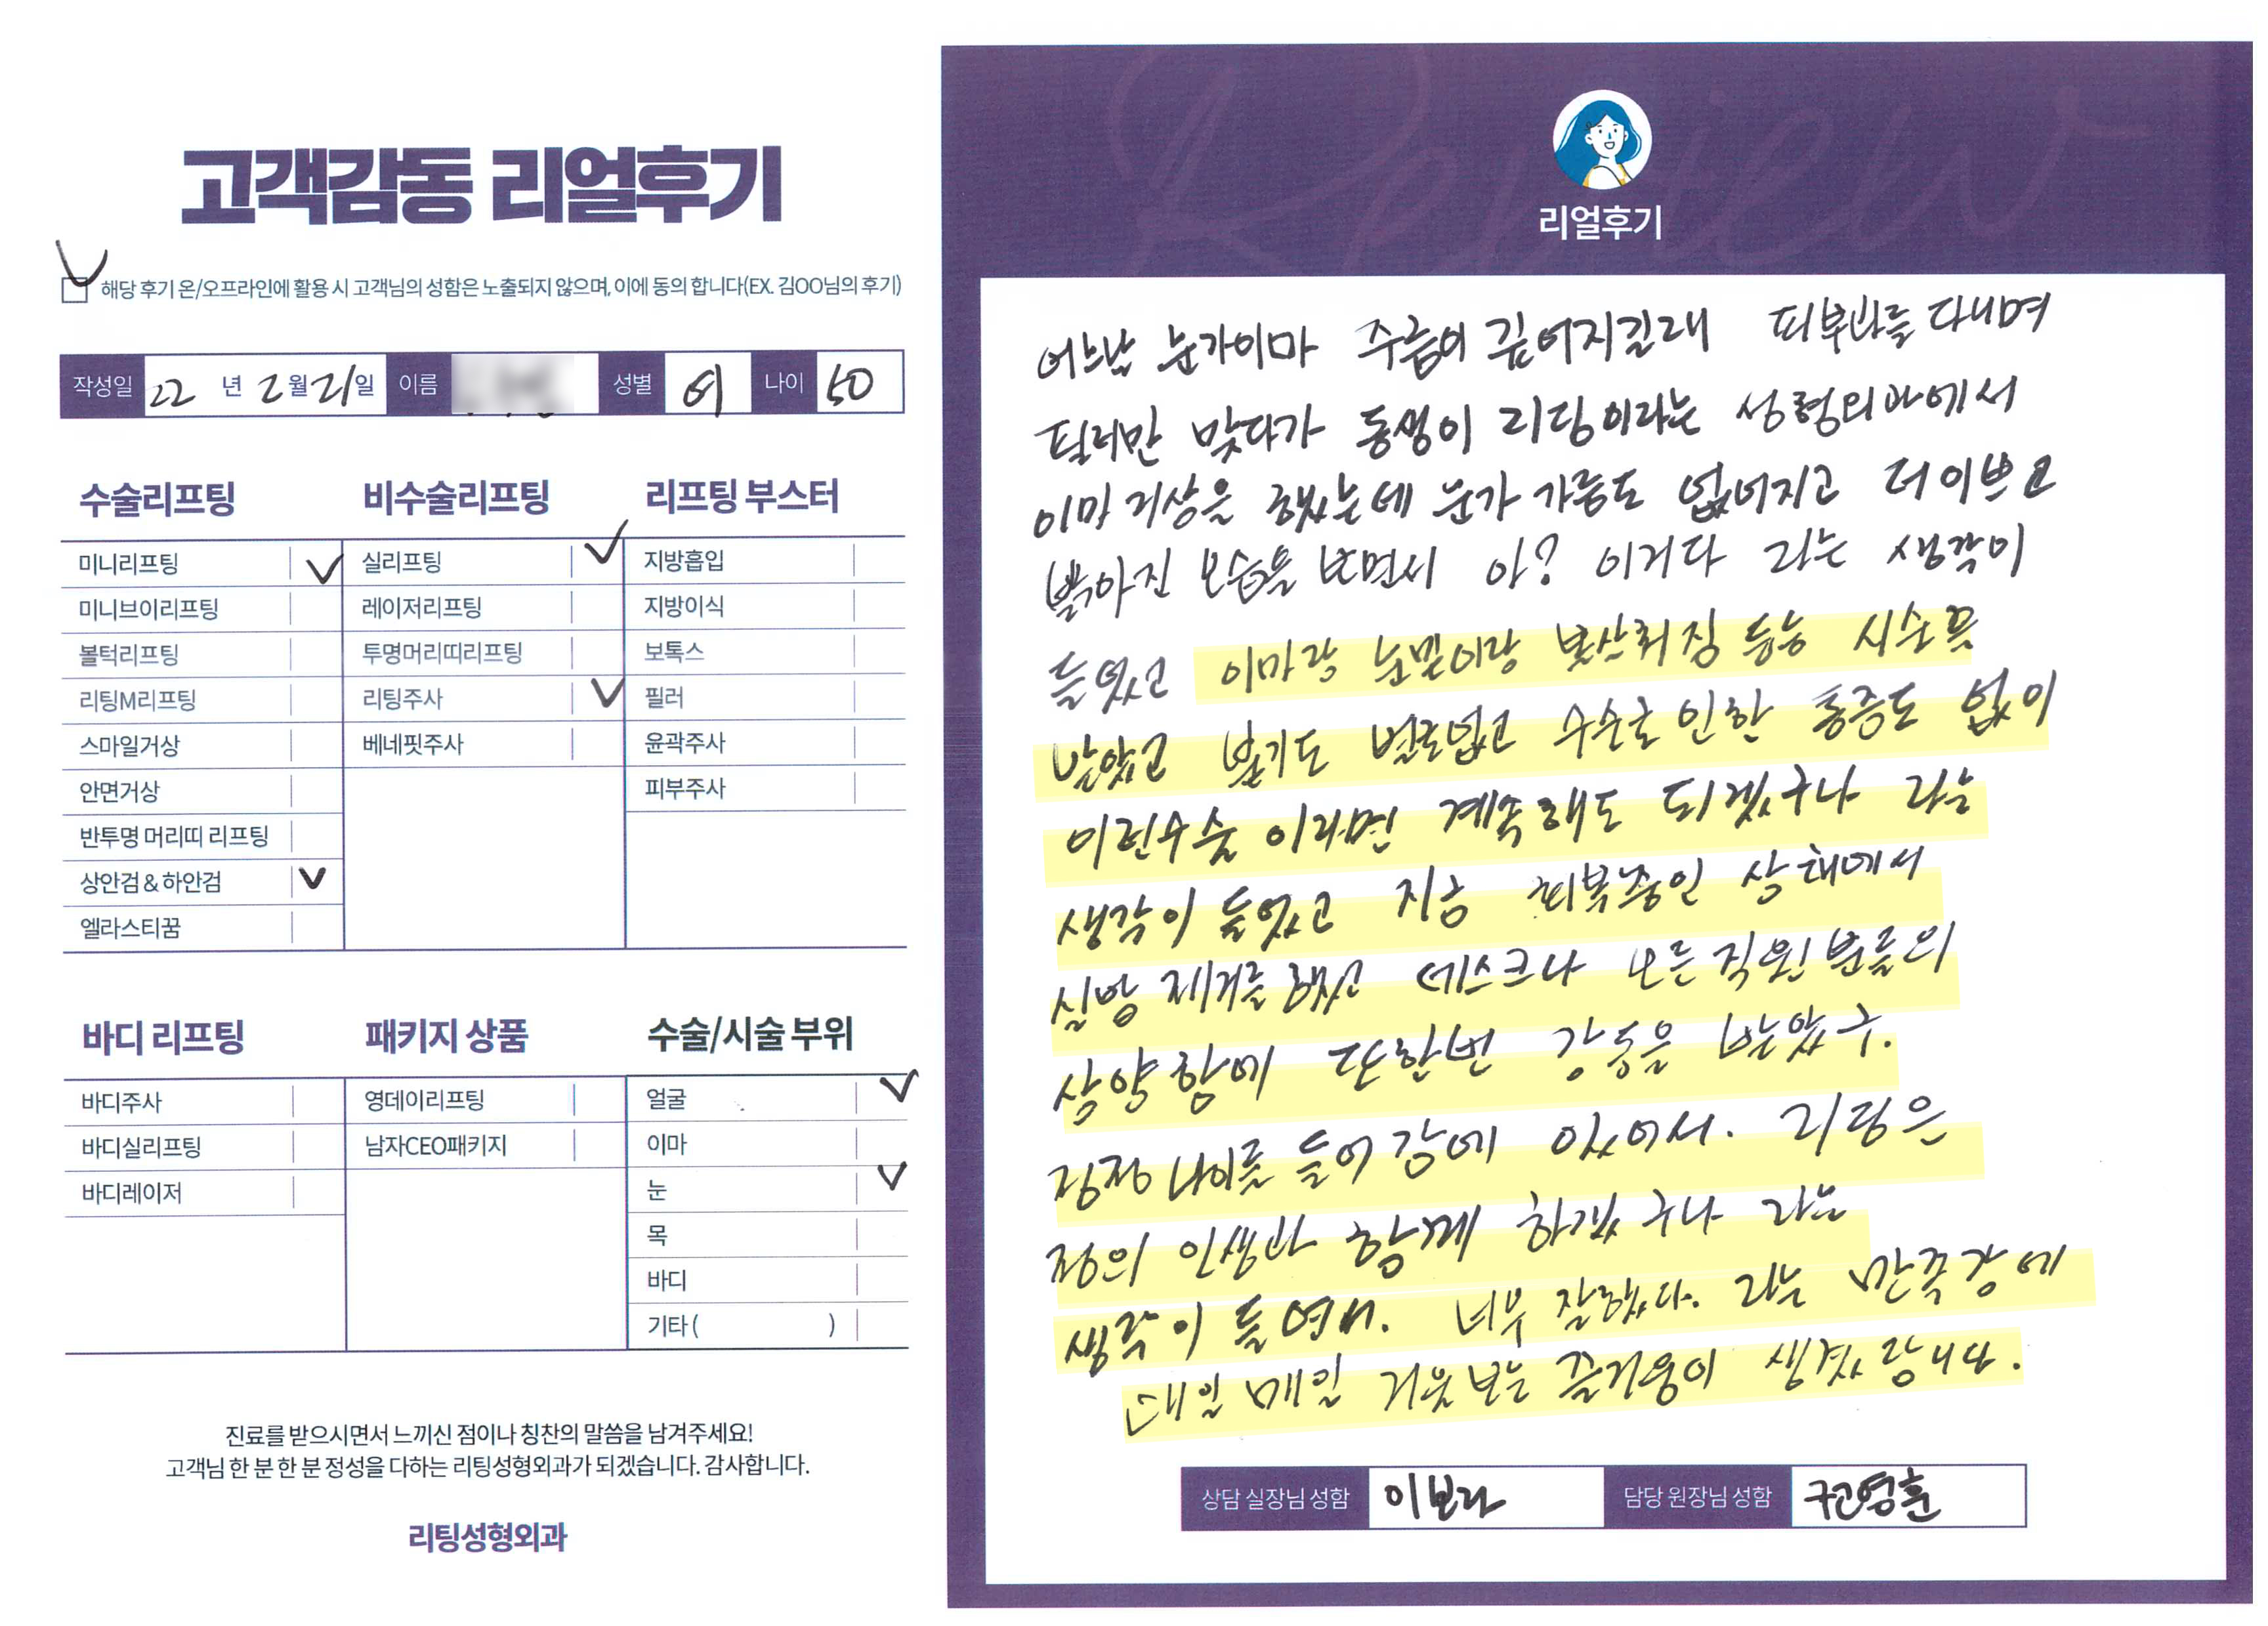 고객감동 리얼후기
해당 후기 온/오프라인에 활용 시 고객님의 성함은 노출되지 않으며, 이에 동의 합니다(EX. 김OO님의 후기)
작성일 22년 2월 21일 이름 성별 여 나이 50
수술리프팅
미니리프팅
미니브이리프팅
볼턱리프팅
리팅M리프팅
스마일거상
안면거상
반투명 머리띠 리프팅
상안검 & 하안검
엘라스티꿈
비수술리프팅
실리프팅
레이저리프팅
투명머리띠리프팅
리팅주사
베네핏주사
리프팅 부스터
지방흡입
지방이식
보톡스
필러
윤곽주사
피부주사
바디 리프팅
바디주사
바디실리프팅
바디레이저
패키지 상품
영데이리프팅
남자CEO패키지
수술/시술 부위
얼굴
이마
눈
목
바디
기타 ( )
진료를 받으시면서 느끼신 점이나 칭찬의 말씀을 남겨주세요!
고객님 한 분 한 분 정성을 다하는 리팅성형외과가 되겠습니다. 감사합니다.
리팅성형외과
Review
리얼후기
어느날 눈가이마 주름이 깊어지길래 피부과를 다니며
필러만 맞다가 동생이 리팅이라는 성형외과에서
이마거상을 했는데 눈가 주름도 없어지고 더 이쁘고
밝아진 모습을 보면서 아? 이거다 라는 생각이
들었고 이마랑 눈밑이랑 시술을
받았고 붓기도 별로없고 수술로 인한 통증도 없이
이런수술 이라면 계속해도 되겠구나 라는
생각이 들었고 지금 회복중인 상태에서
실밥 제거를 했고 데스크나 모든 직원분들의
상냥함에 또한번 감동을 받았구.
점점 나이를 들어감에 있어서. 리팅은
저의 인생과 함께 하겠구나 라는
생각이 들었네. 너무 잘했다. 라는 만족감에
매일 매일 거울보는 즐거움이 생겼답니다.
상담 실장님 성함 이보라 담당 원장님 성함 권영훈